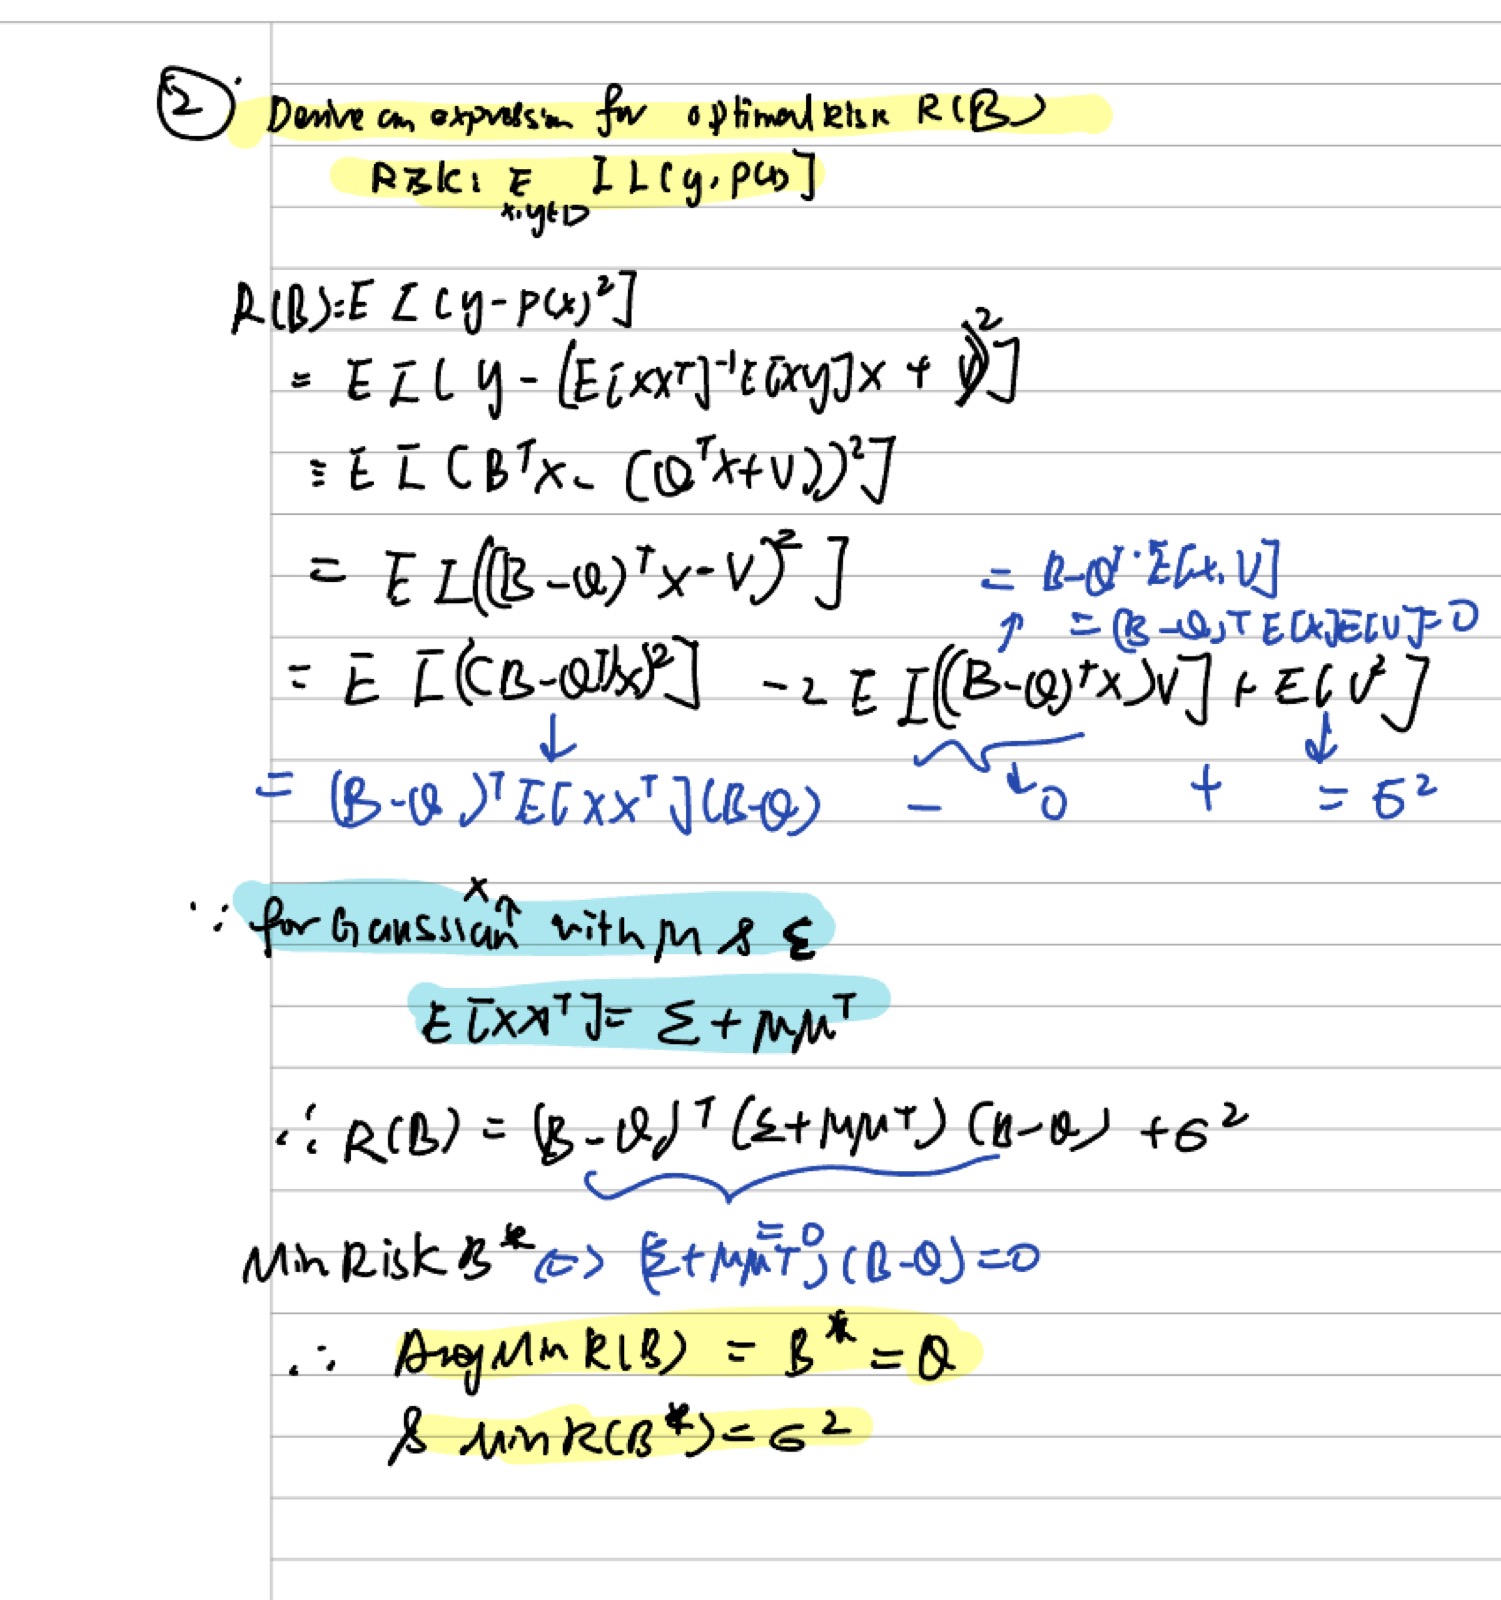 ② Derive an expression for optimal Risk R(B)
Risk: E x,y∈D [L(y, p(x)]
R(B)=E[(y-p(x)²]
= E[(y-(E[xxᵀ]⁻¹E[xy]x + V)²]
= E[(Bᵀx-(θᵀx+V))²]
= E[((B-θ)ᵀx-V)²]
= B-θᵀ·E[x,V]
↑ = (B-θ)ᵀE[x]E[V]=0
= E[((B-θ)ᵀx)²] -2E[((B-θ)ᵀx)V] + E[V²]
↓ ↓
= (B-θ)ᵀE[xxᵀ](B-θ) - ↘0 + = σ²
∵ for Gaussian x ↑ with μ & Σ
E[xxᵀ]= Σ+μμᵀ
∴ R(B) = (B-θ)ᵀ(Σ+μμᵀ)(B-θ) +σ²
=0
Min Risk B* ⇔ (Σ+μμᵀ)(B-θ)=0
∴ ArgMin R(B) = B* = θ
& Min R(B*)=σ²